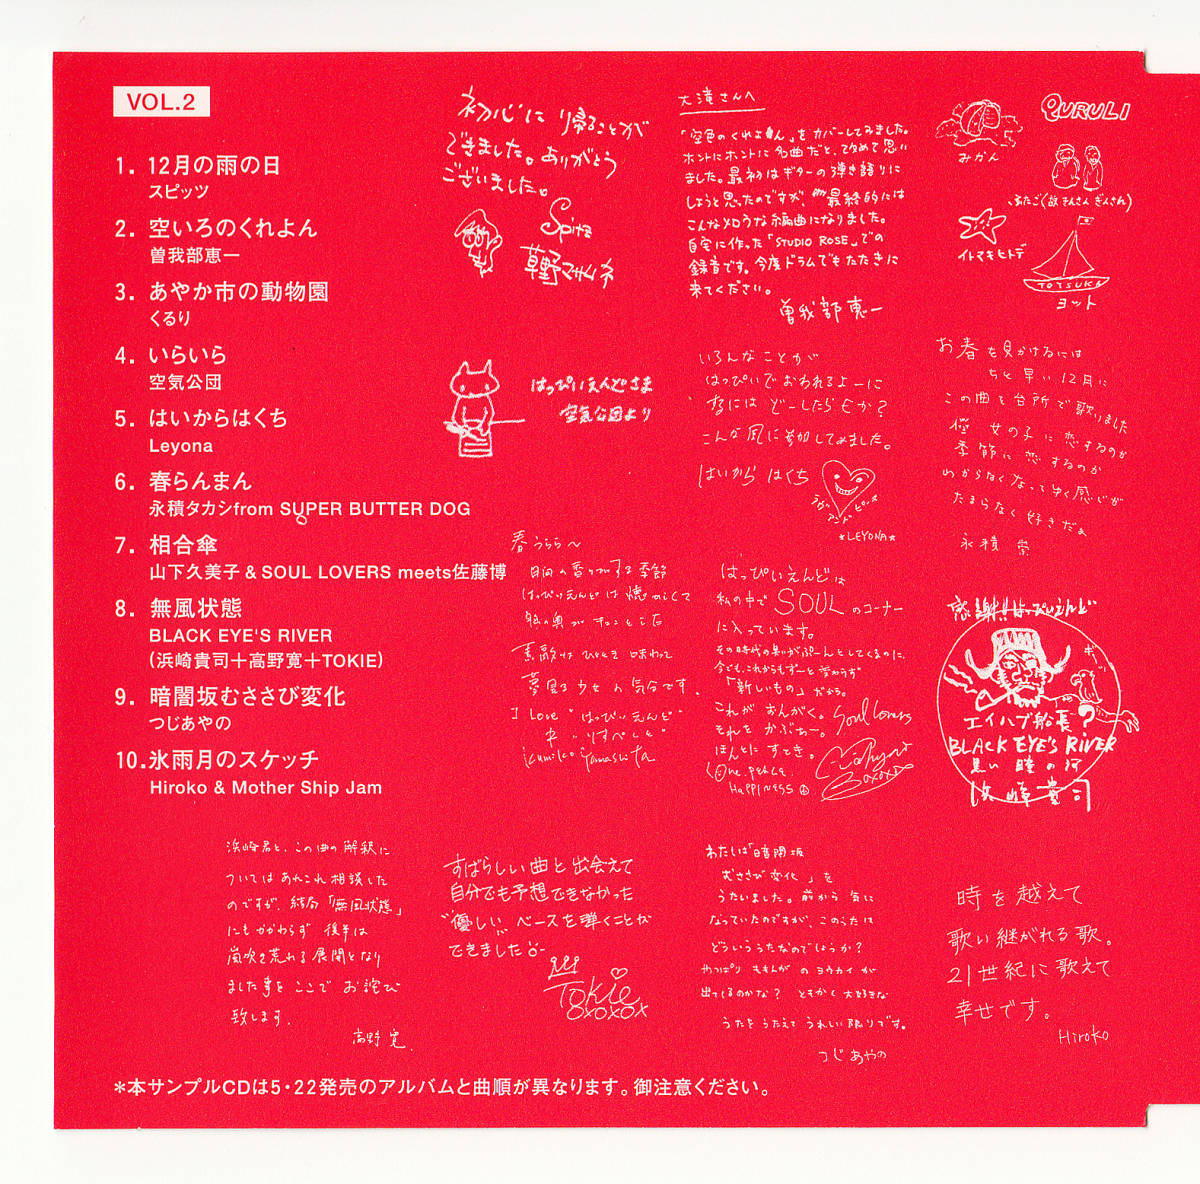 VOL.2
1. 12月の雨の日
スピッツ
2. 空いろのくれよん
曽我部恵一
3. あやか市の動物園
くるり
4. いらいら
空気公団
5. はいからはくち
Leyona
6. 春らんまん
永積タカシfrom SUPER BUTTER DOG
7. 相合傘
山下久美子 & SOUL LOVERS meets佐藤博
8. 無風状態
BLACK EYE'S RIVER
(浜崎貴司＋高野寛＋TOKIE)
9. 暗闇坂むささび変化
つじあやの
10. 氷雨月のスケッチ
Hiroko & Mother Ship Jam
初心に帰ることが
できました。ありがとう
ございました。
Spitz
草野マサムネ
大滝さんへ
「空色のくれよん」をカバーしてみました。
ホントにホントに名曲だと、改めて思い
ました。最初はギターの弾き語りに
しようと思ったのですが、最終的には
こんなメロウな編曲になりました。
自宅に作った「STUDIO ROSE」での
録音です。今度ドラムでもたたきに
来てください。
曽我部恵一
QURULI
みかん
ふたご(故きんさんぎんさん)
イトマキヒトデ
TOTSUKA
ヨット
はっぴいえんどさま
空気公団より
いろんなことが
はっぴいでおわれるよーに
するには どーしたらEか?
こんな風に参加してみました。
はいから はくち
ラヴ アンド ピース
★LEYONA★
お春を見かけるには
ちと早い12月に
この曲を台所で歌いました
僕 女の子に恋するのか
季節に恋するのか
わからなくなってゆく感じが
たまらなく好きだぁ
永積 崇
春うらら〜
はっぴいえんどは懐かしくて
素敵なひとときを味わって
夢見る少女の気分です。
I Love "はっぴいえんど"
Kumiko Yamashita
はっぴいえんどは
私の中でSOULのコーナー
に入っています。
その時代の臭いがぷーんとしてくるのに、
今でも、これからもずーと変わらず
「新しいもの」だから。
これが おんがく。
それを かぶちー。
ほんとに すてき。
Soul Lovers
One, peace,
HAPPINESS
感謝!!はっぴいえんど
エイハブ船長?
BLACK EYE'S RIVER
黒い瞳の河
浜崎貴司
浜崎君と、この曲の解釈に
ついてはあれこれ相談した
のですが、結局「無風状態」
にもかかわらず 後半は
嵐吹き荒れる展開となり
ました事をここで お詫び
致します。
高野 寛
すばらしい曲と出会えて
自分でも予想できなかった
"優しい"ベースを弾くことが
できました
TOKIE
oxoxox
わたしは「暗闇坂
むささび変化」を
うたいました。前から気に
なっていたのですが、このうたは
どういううたなのでしょうか?
やっぱり ももんがのヨウカイが
出てくるのかな? ともかく大好きな
うたをうたえて うれしい限りです。
つじあやの
時を越えて
歌い継がれる歌。
21世紀に歌えて
幸せです。
Hiroko
＊本サンプルCDは5・22発売のアルバムと曲順が異なります。御注意ください。